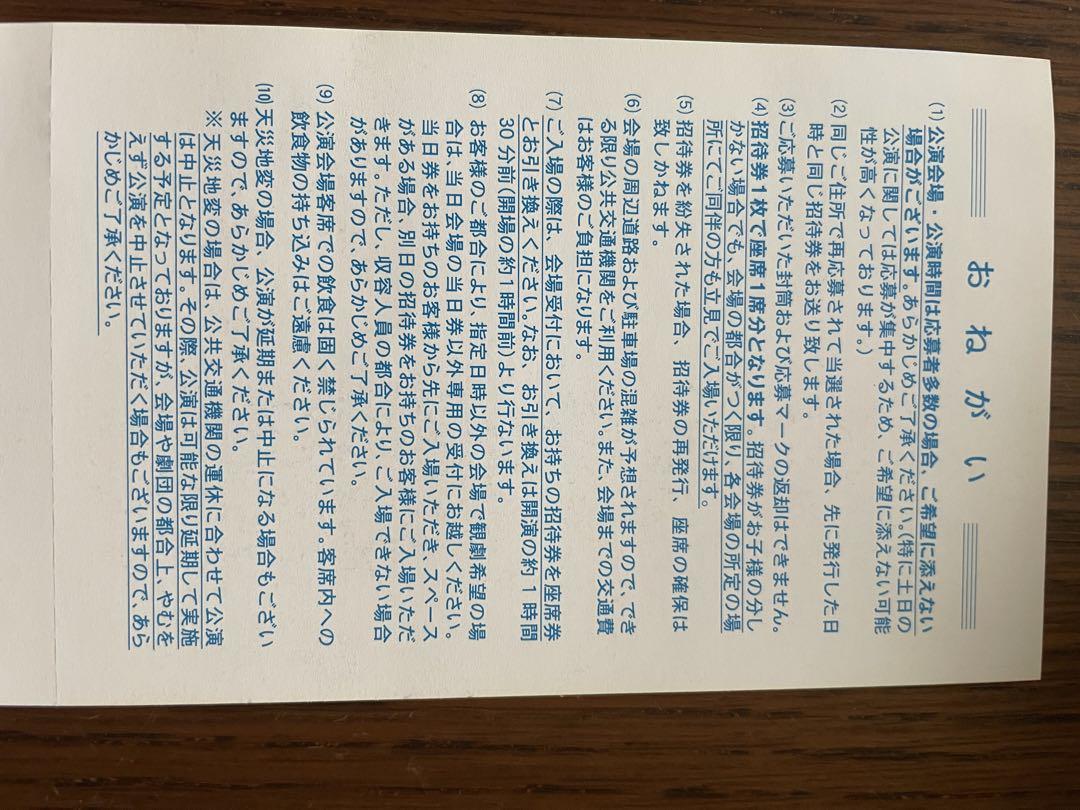 おねがい
(1) 公演会場・公演時間は応募者多数の場合、ご希望に添えない
場合がございます。あらかじめご了承ください。(特に土日の
公演に関しては応募が集中するため、ご希望に添えない可能
性が高くなっております。)
(2) 同じご住所で再応募されて当選された場合、先に発行した日
時と同じ招待券をお送り致します。
(3) ご応募いただいた封筒および応募マークの返却はできません。
(4) 招待券1枚で座席1席分となります。招待券がお子様の分し
かない場合でも、会場の都合がつく限り、各会場の所定の場
所にてご同伴の方も立見でご入場いただけます。
(5) 招待券を紛失された場合、招待券の再発行、座席の確保は
致しかねます。
(6) 会場の周辺道路および駐車場の混雑が予想されますので、でき
る限り公共交通機関をご利用ください。また、会場までの交通費
はお客様のご負担になります。
(7) ご入場の際は、会場受付において、お持ちの招待券を座席券
とお引き換えください。なお、お引き換えは開演の約1時間
30分前(開場の約1時間前)より行ないます。
(8) お客様のご都合により、指定日時以外の会場で観劇希望の場
合は、当日会場の当日券以外専用の受付にお越しください。
当日券をお持ちのお客様から先にご入場いただき、スペース
がある場合、別日の招待券をお持ちのお客様にご入場いただ
きます。ただし、収容人員の都合により、ご入場できない場合
がありますので、あらかじめご了承ください。
(9) 公演会場客席での飲食は固く禁じられています。客席内への
飲食物の持ち込みはご遠慮ください。
(10) 天災地変の場合、公演が延期または中止になる場合もござい
ますので、あらかじめご了承ください。
※天災地変の場合は、公共交通機関の運休に合わせて公演
は中止となります。その際、公演は可能な限り延期して実施
する予定となっておりますが、会場や劇団の都合上、やむを
えず公演を中止させていただく場合もございますので、あら
かじめご了承ください。